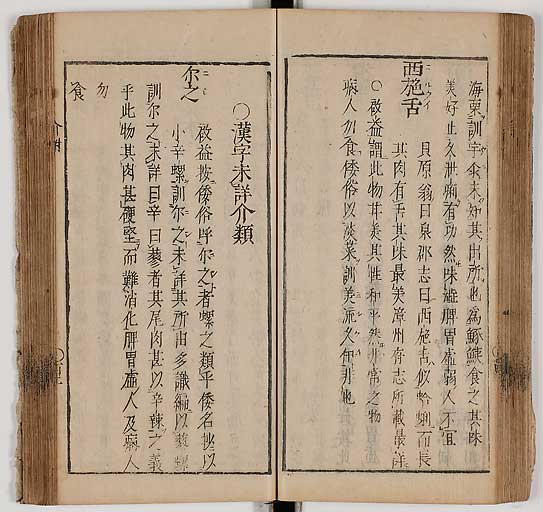 海栗訓宇仁未知其出所也為豚鰊食之其味
美好止久泄痢有功然味鹹脾胃虚弱人不宜
西施舌
貝原翁曰泉郡志曰西施舌似蛤蜊而長
其肉有舌其味最美漳州府志所載最詳
○啟益謂此物其性和平然非常之物
病人勿食倭俗以淡菜訓美流久伊非也
○漢字未詳介類
尔之
啟益按倭俗呼尔之者螺之類乎倭名抄以
小辛螺訓尔之未詳其所由多識編以蓼螺
訓尔之未詳曰辛曰蓼者其尾肉甚以辛辣之義
乎此物其肉甚硬堅而難消化脾胃虚人及病人
勿
食